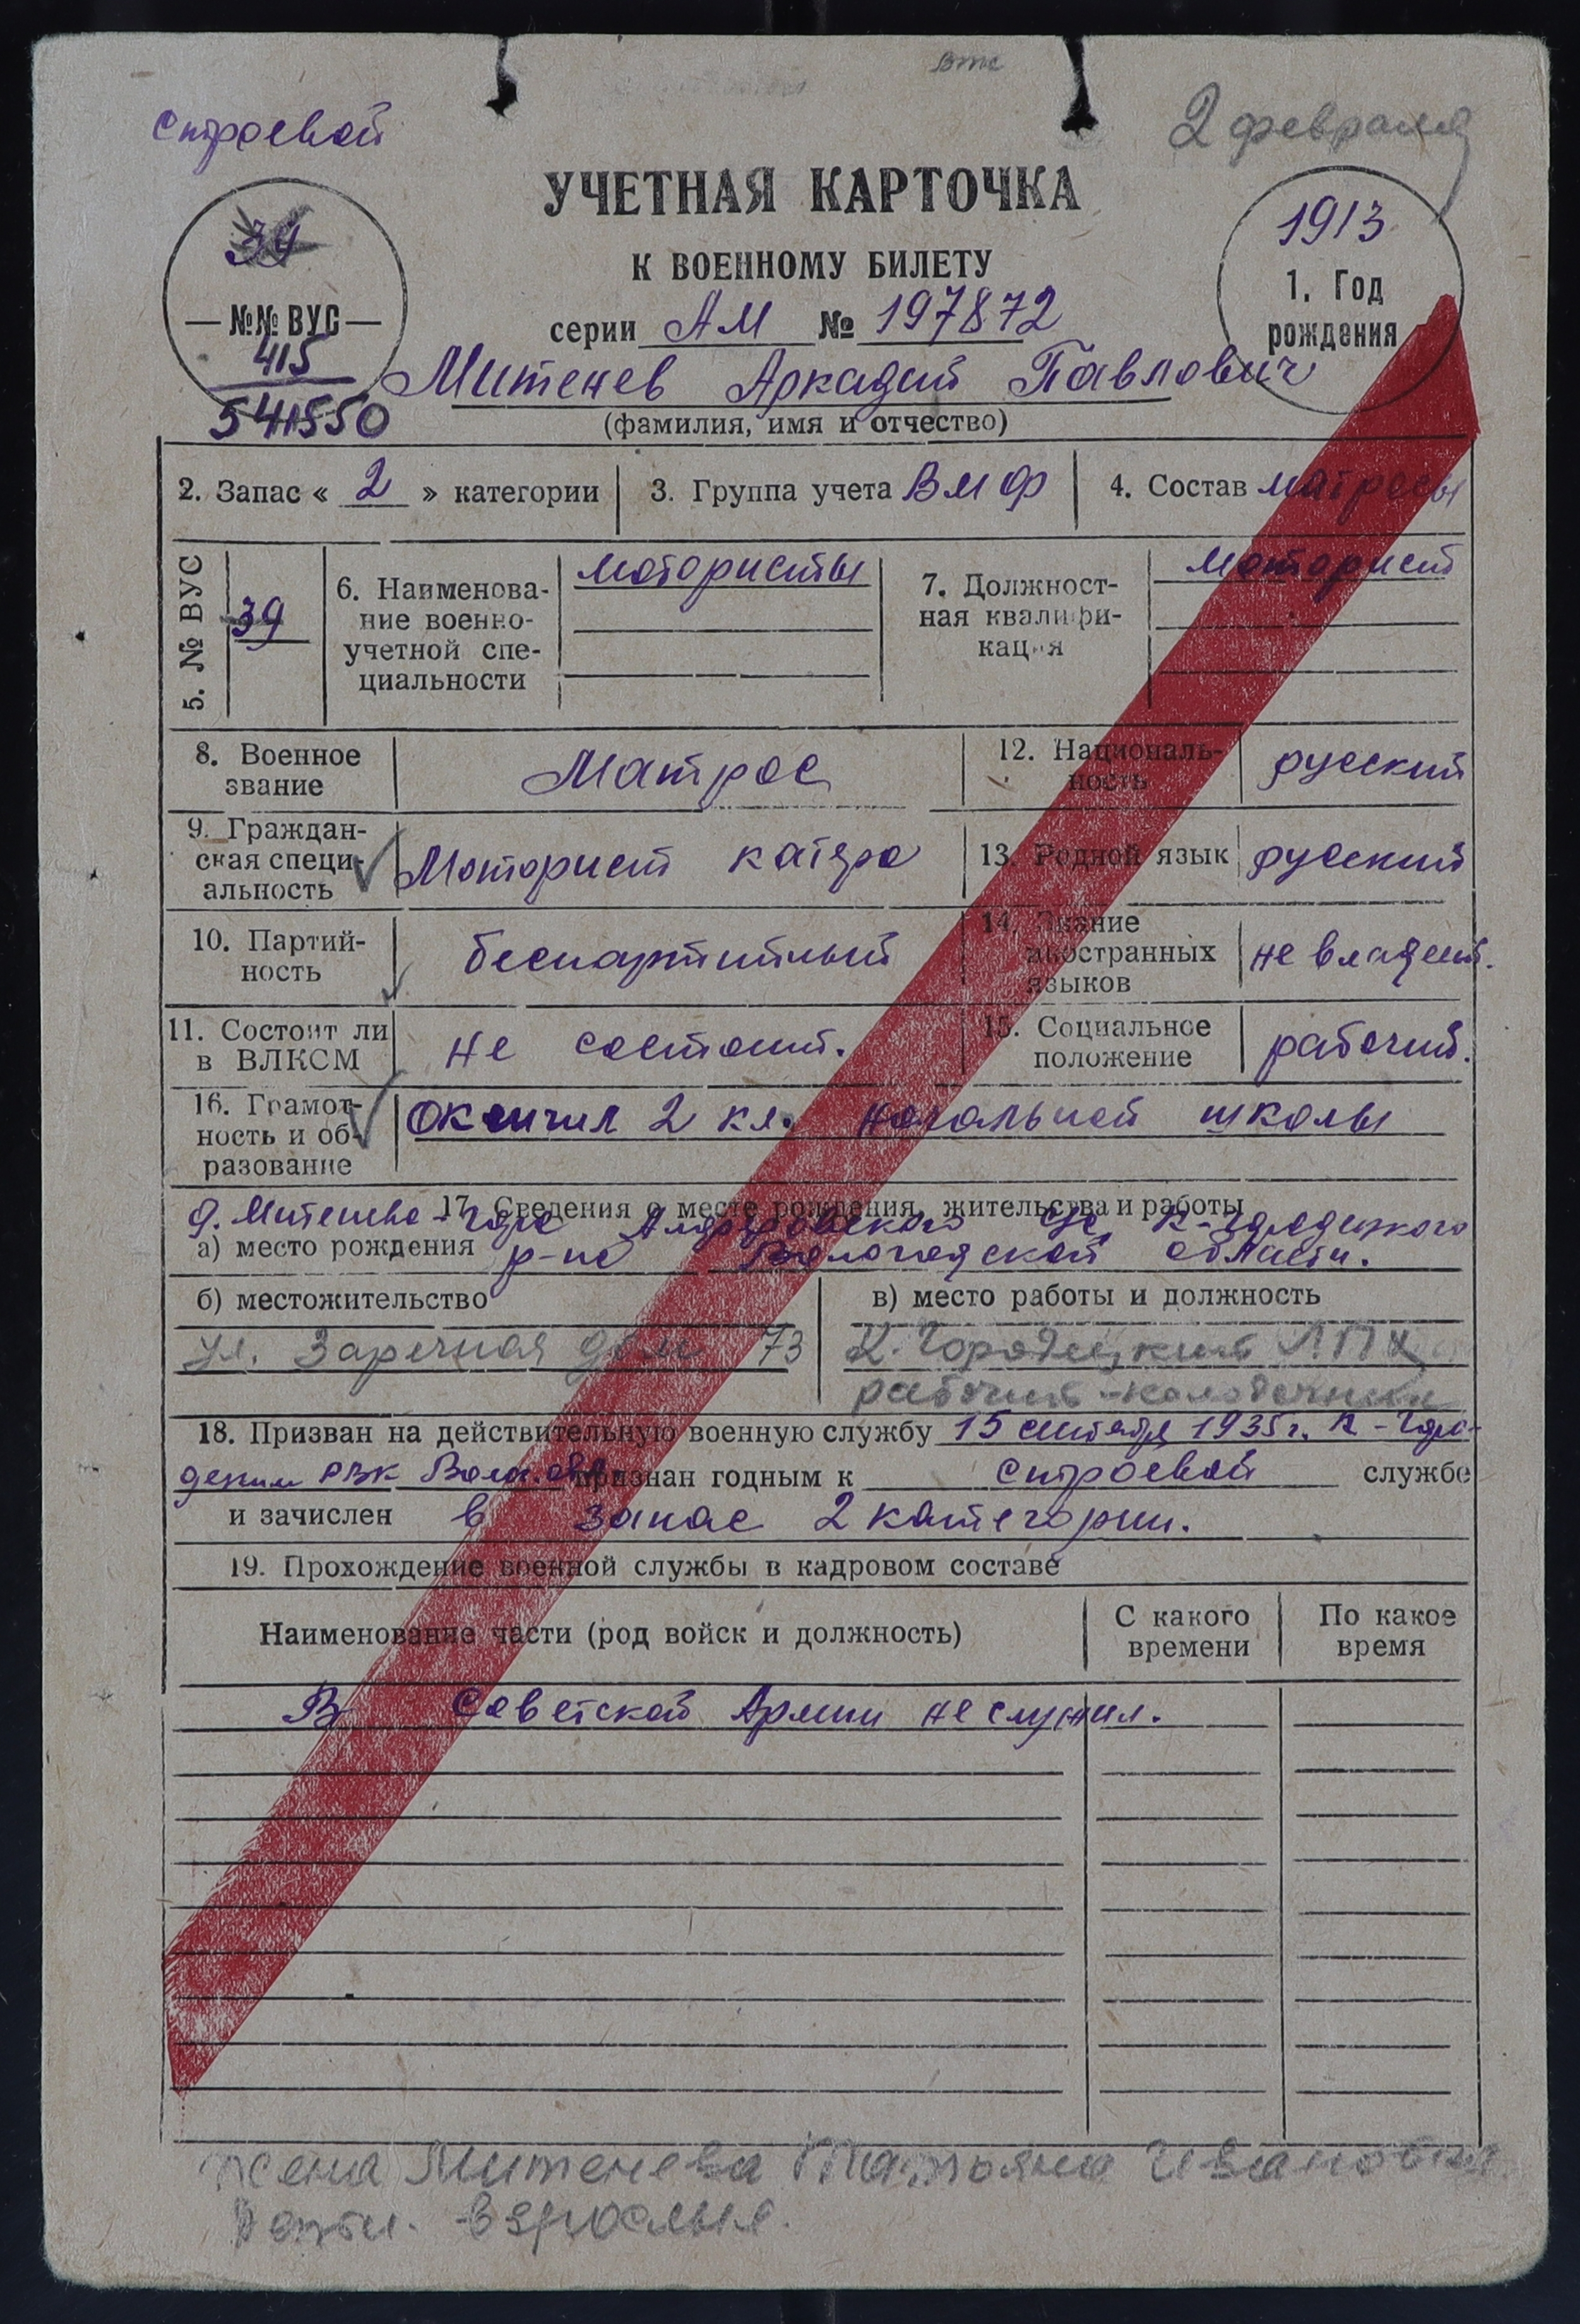 втс
строевой
2 февраля
УЧЕТНАЯ КАРТОЧКА
К ВОЕННОМУ БИЛЕТУ
серии АМ № 197872
39
№№ ВУС
415
541550
1913
1. Год
рождения
Митенев Аркадий Павлович
(фамилия, имя и отчество)
2. Запас « 2 » категории
3. Группа учета ВМФ
4. Состав матросы
5. № ВУС
39
6. Наименова-
ние военно-
учетной спе-
циальности
мотористы
7. Должност-
ная квалифи-
кация
моторист
8. Военное
звание
Матрос
12. Националь-
ность
русский
9. Граждан-
ская специ-
альность
Моторист катера
13. Родной язык
русский
10. Партий-
ность
беспартийный
14. Знание
иностранных
языков
не владеет.
11. Состоит ли
в ВЛКСМ
не состоит.
15. Социальное
положение
рабочий.
16. Грамот-
ность и об-
разование
окончил 2 кл. начальной школы
17. Сведения о месте рождения, жительства и работы
д. Митенева-Гора с/с К-Городецкого
а) место рождения р-на Вологодской области.
б) местожительство
ул. Заречная дом 73
в) место работы и должность
К-Городецкий ЛПХ
рабочий
18. Призван на действительную военную службу 15 сентября 1935 г. К-Горо-
децким РВК Волог. обл. признан годным к строевой службе
и зачислен в запас 2 категории.
19. Прохождение военной службы в кадровом составе
Наименование части (род войск и должность)
С какого
времени
По какое
время
В Советской Армии не служил.
жена Митенева Татьяна Ивановна.
Дети - взрослые.